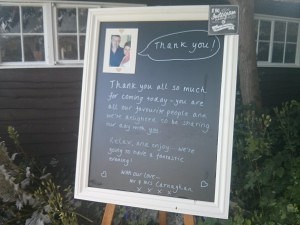 Thank you!
Thank you all so much
for coming today - you are
all our favourite people and
we're delighted to be sharing
our day with you.
Relax, and enjoy - we're
going to have a fantastic
evening!
With our love -
Mr & Mrs Carnaghan
x x x x